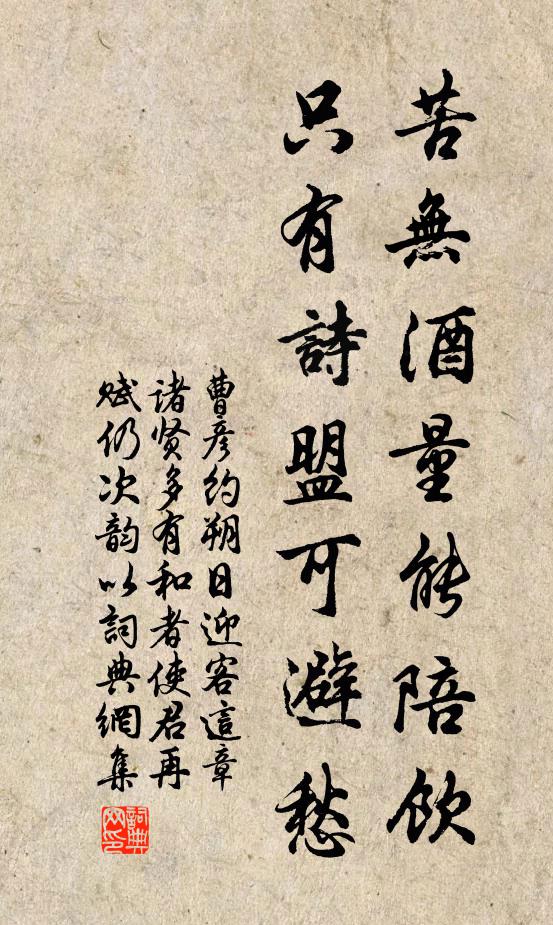 苦無酒量能陪飲
只有詩盟可避愁
曹彦約朔日迎客這章
諸贤多有和者使君再
赋仍次韵以詞典網集
詞典网印